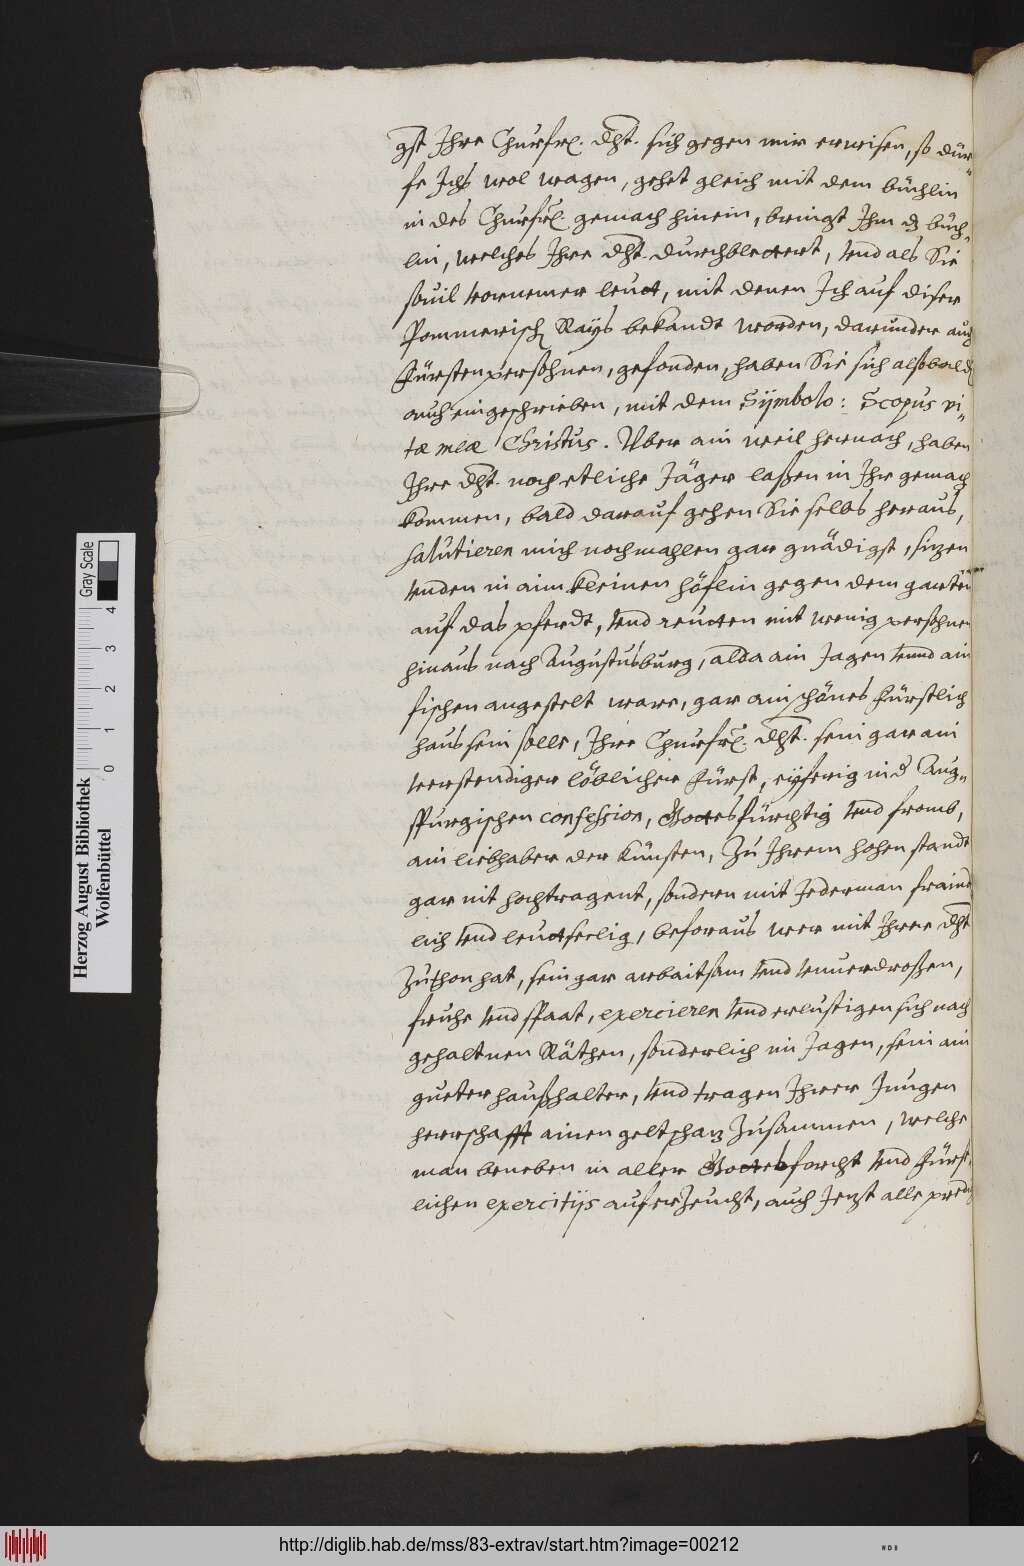 gst Ihre Churfrl. dht. sich gegen mir erweisen, so dür-
fe Ichs wol wagen, gehet gleich mit dem büchlin
in des Churfrl. gemach hinein, bringt Ihm dz büch-
lin, welches Ihre dht. durchblettert, vnd als Sie
souil vornemer leutt, mit denen Ich auf diser
Pommerisch Rays bekandt worden, darunder auch
Fürstenpersohnen, gefonden, haben Sie sich alßbald
auch eingeschrieben, mit dem Sÿmbolo: Scopus vi-
tæ meæ Christus. Vber ain weil hernach, haben
Ihre dht. noch etliche Jäger laßen in Ihr gemach
kommen, bald darauf gehen Sie selbs heraus,
salutieren mich nochmahlen gar gnädigst, sizen
vnden in aim kleinen höflin gegen dem garten
auf das pferdt, vnd reutten mit wenig persohnen
hinaus nach Augustusburg, alda ain Jagen vnnd ain
fischen angestelt ware, gar ain schönes Fürstlich
haus sein solle, Ihre Churfrl. dht. sein gar ain
verstendiger löblicher Fürst, eyferig in d Aug-
spurgischen confession, Gottesfürchtig vnd fromb,
ain liebhaber der Künsten, Zu Ihrem hohen stande
gar nit hochtragent, sondern mit Jederman fraind
lich vnd leuttseelig, beforaus wer mit Ihrer dht
Zuthon hat, sein gar arbaitsam vnd vnuerdroßen,
fruhe vnd spaat, exercieren vnd erlustigen sich nach
gehaltnen Räthen, sonderlich im Jagen, sein ain
gueter haußhalter, vnd tragen Ihrer Jungen
herrschafft ainen geltschaz Zusammen, welche
man beneben in aller Gottesforcht vnd Fürst-
lichen exercitijs auferzeucht, auch Jezt alle
Herzog August Bibliothek
Wolfenbüttel
0 1 2 3 4
Gray Scale
http://diglib.hab.de/mss/83-extrav/start.htm?image=00212